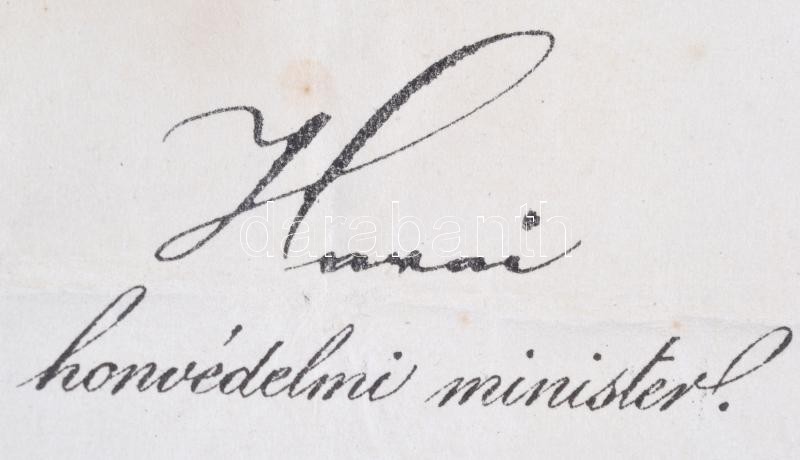 Hazai
honvédelmi minister.
darabanth